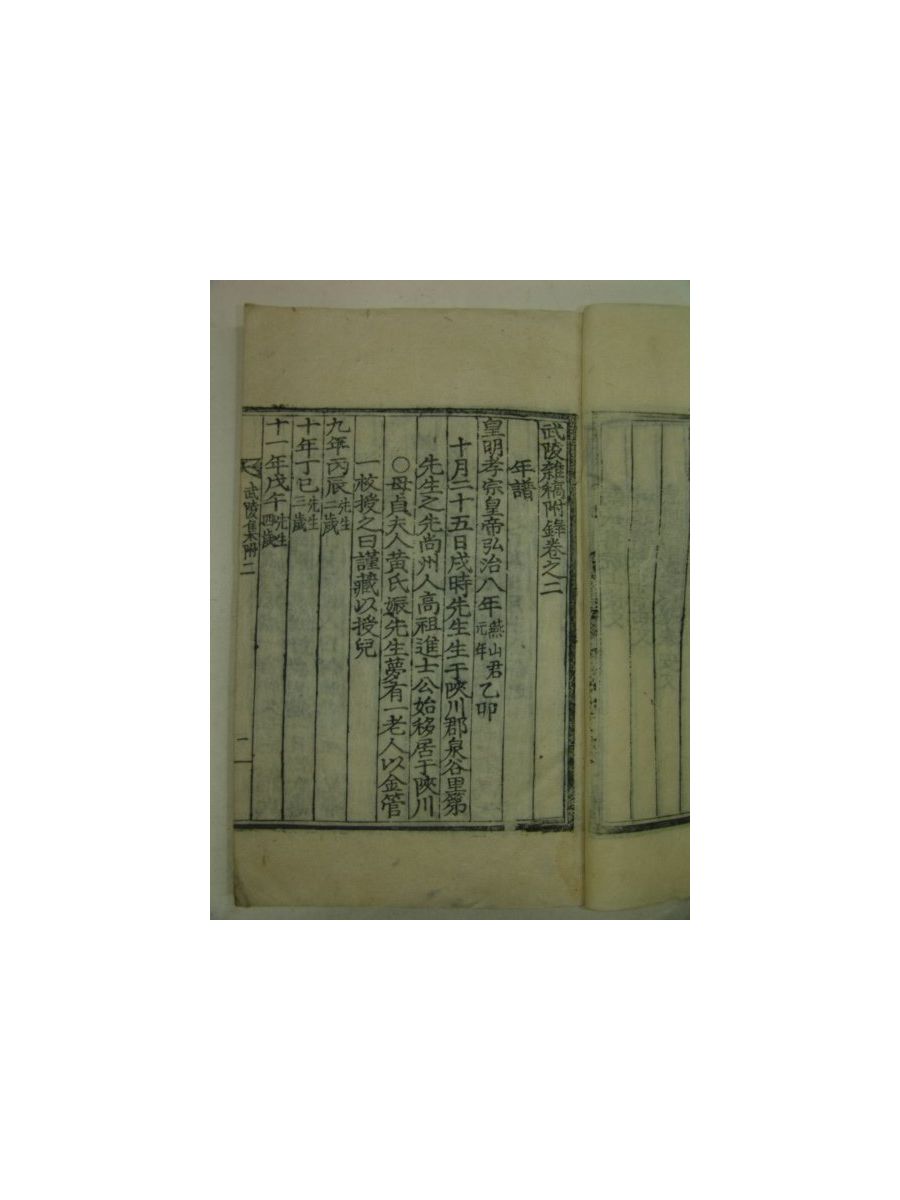 武陵雜稿附錄卷之二
年譜
皇明孝宗皇帝弘治八年燕山君元年乙卯
十月二十五日戌時先生生于陜川郡泉谷里第
先生之先尙州人高祖進士公始移居于陜川
○母貞夫人黃氏娠先生夢有一老人以金管
一枚授之曰謹藏以授兒
九年丙辰先生二歲
十年丁巳先生三歲
十一年戊午先生四歲
武陵集附二
一